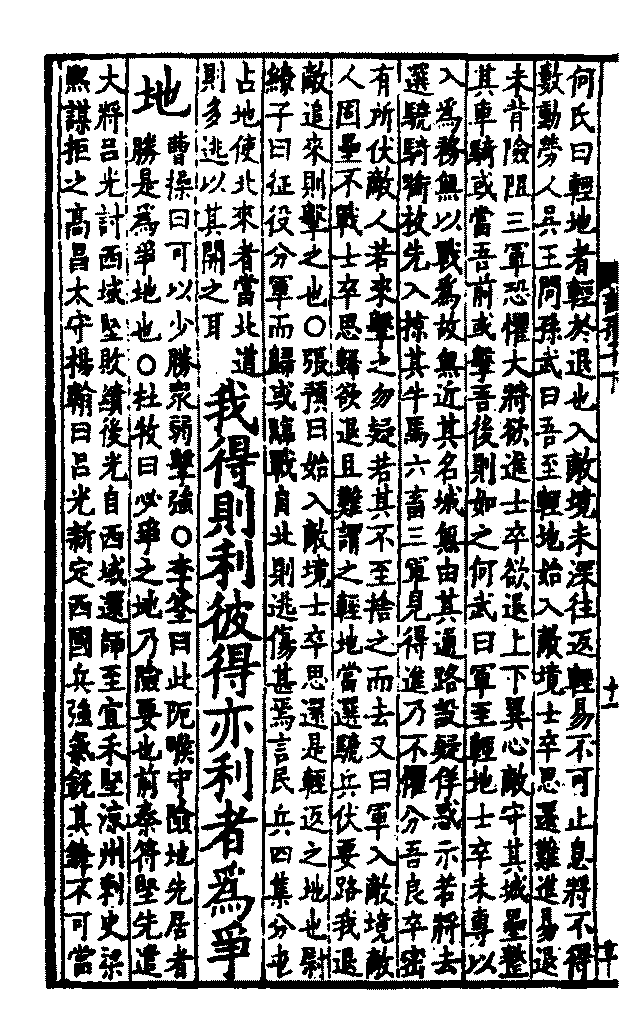 何氏曰輕地者輕於退也入敵境未深往返輕易不可止息將不得
數動勞人吳王問孫武曰吾至輕地始入敵境士卒思還難進易退
未背險阻三軍恐懼大將欲進士卒欲退上下異心敵守其城壘整
其車騎或當吾前或擊吾後則如之何武曰軍至輕地士卒未專以
入爲務無以戰爲故無近其名城無由其通路設疑佯惑示若將去
選驍騎銜枚先入掠其牛馬六畜三軍見得進乃不懼分吾良卒密
有所伏敵人若來擊之勿疑若其不至捨之而去又曰軍入敵境敵
人固壘不戰士卒思歸欲退且難謂之輕地當選驍兵伏要路我退
敵追來則擊之也〇張預曰始入敵境士卒思還是輕返之地也尉
繚子曰征役分軍而歸或臨戰自北則逃傷甚焉言民兵四集分屯
占地使北來者當北道
則多逃以其開之耳
我得則利彼得亦利者爲爭
地
曹操曰可以少勝衆弱擊強〇李筌曰此阨喉守險地先居者
勝是爲爭地也〇杜牧曰必爭之地乃險要也前秦苻堅先遣
大將呂光討西域堅敗績後光自西域還師至宜禾堅涼州刺史梁
熙謀拒之高昌太守楊翰曰呂光新定西國兵強氣銳其鋒不可當
十一